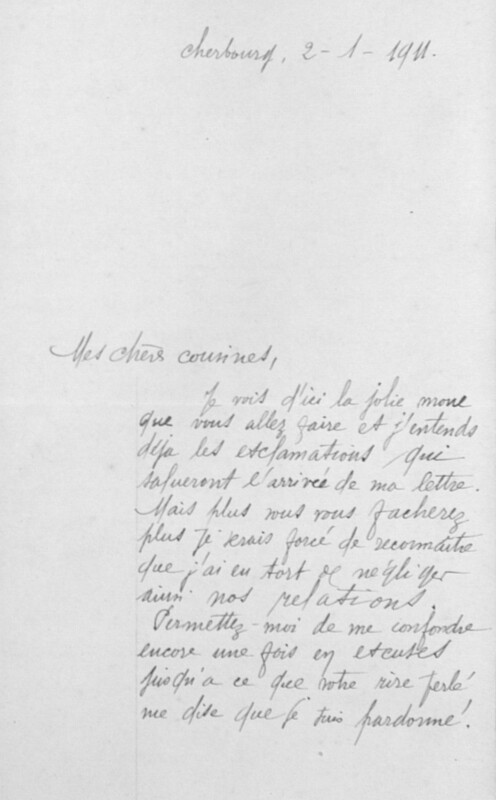 Cherbourg, 2-1-1911.
Mes chères cousines,
Je vois d'ici la jolie moue
que vous allez faire et j'entends
déja les exclamations qui
salueront l'arrivée de ma lettre.
Mais plus vous vous facherez
plus je serais forcé de reconnaître
que j'ai eu tort de négliger
ainsi nos relations.
Permettez-moi de me confondre
encore une fois en excuses
jusqu'a ce que votre rire perlé
me dise que je suis pardonné.